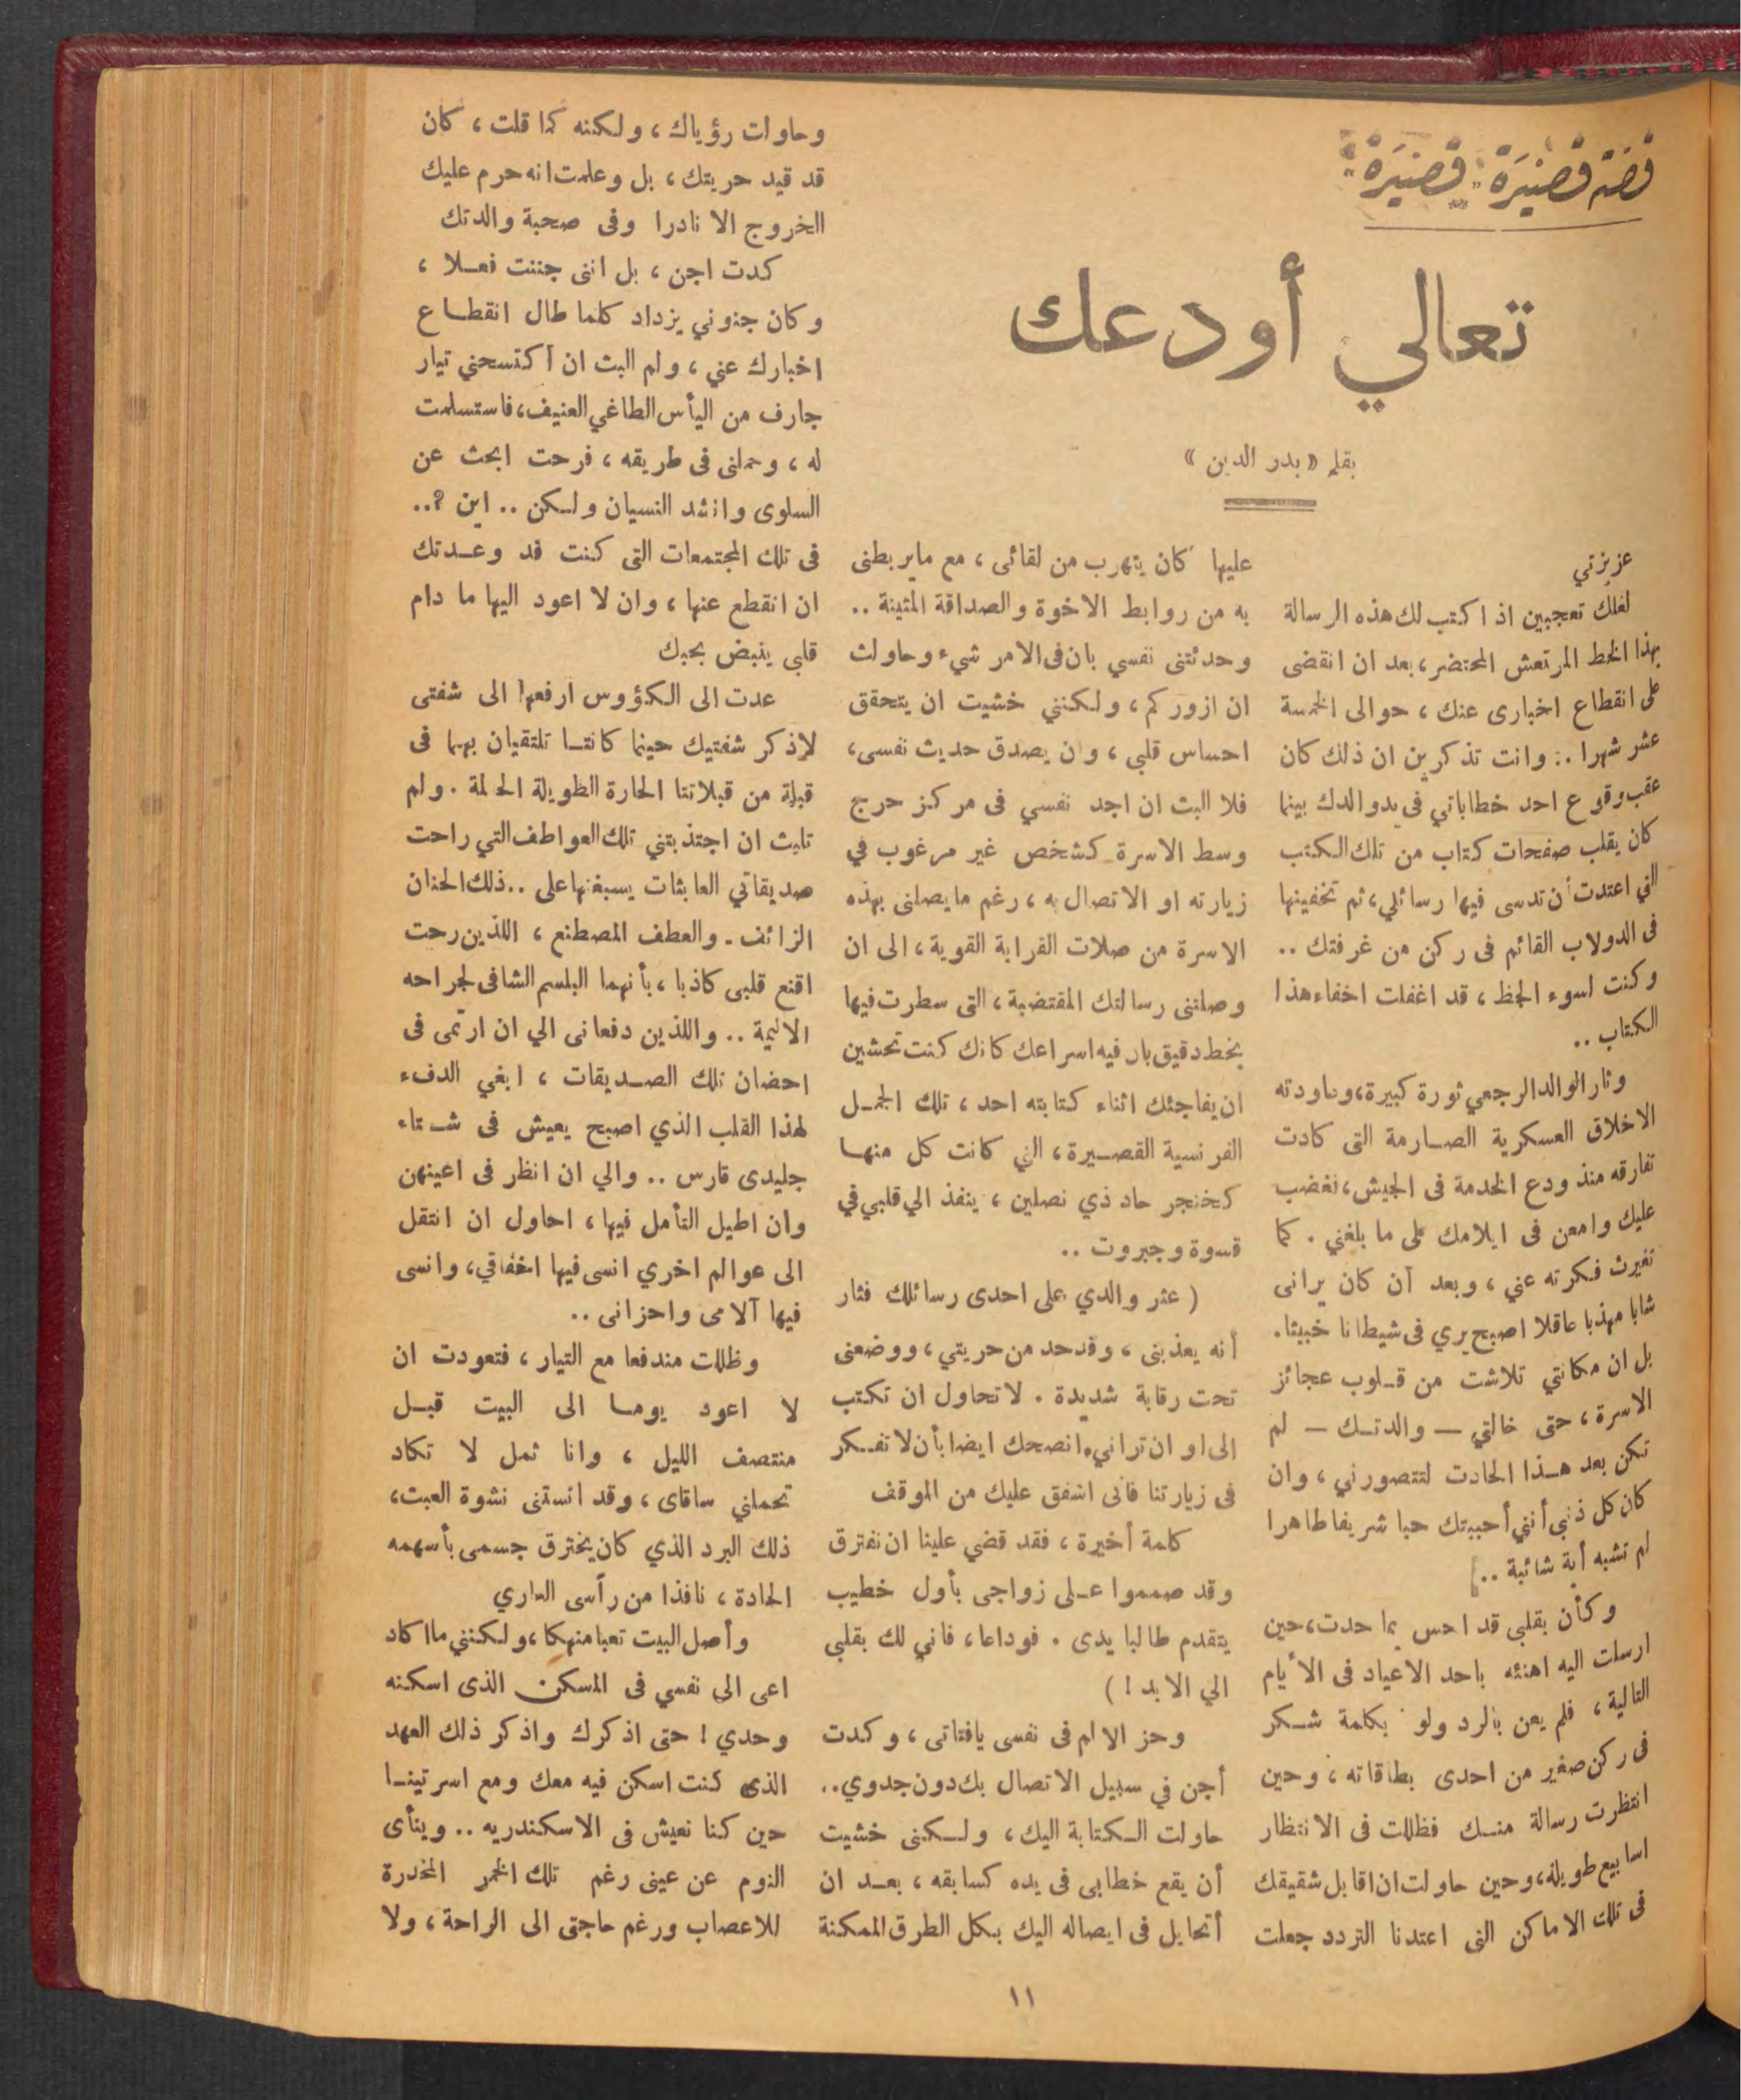 قصة قصيرة قصيرة
تعالي أودعك
بقلم «بدر الدين»
عزيزتي
لعلك تعجبين اذ اكتب لك هذه الرسالة
بهذا الخط المرتعش المحتضر، بعد ان انقضى
على انقطاع اخبارى عنك ، حوالى الخمسة
عشر شهرا .. وانت تذكرين ان ذلك كان
عقب وقوع احد خطاباتي فى يد والدك بينما
كان يقلب صفحات كتاب من تلك الكتب
التي اعتدت أن تدسى فيها رسائلي، ثم تخفينها
فى الدولاب القائم فى ركن من غرفتك ..
وكنت لسوء الحظ ، قد اغفلت اخفاء هذا
الكتاب ..
وثار الوالد الرجعي ثورة كبيرة، وعاودته
الاخلاق العسكرية الصـارمة التى كادت
تفارقه منذ ودع الخدمة فى الجيش، فغضب
عليك وامعن فى ايلامك على ما بلغني . كما
تغيرت فكرته عني ، وبعد أن كان يرانى
شابا مهذبا عاقلا اصبح يري فى شيطانا خبيثا.
بل ان مكانتي تلاشت من قـلوب عجائز
الاسرة ، حتى خالتي — والدتـك — لم
تكن بعد هـذا الحادث لتتصورني ، وان
كان كل ذنبي أنني أحببتك حبا شريفا طاهرا
لم تشبه أية شائبة ..
وكأن بقلبي قد احس بما حدث، حين
ارسلت اليه اهنئه باحد الاعياد فى الأيام
التالية ، فلم يعن بالرد ولو بكلمة شـكر
فى ركن صغير من احدى بطاقاته ، وحين
انتظرت رسالة منـك فظللت فى الانتظار
اسابيع طويلة، وحين حاولت ان اقابل شقيقك
فى تلك الاماكن التى اعتدنا التردد جعلت
عليها كان يتهرب من لقائى ، مع مايربطنى
به من روابط الاخوة والصداقة المتينة ..
وحدثتنى نفسي بان فى الامر شيء وحاولت
ان ازوركم ، ولكنني خشيت ان يتحقق
احساس قلبي ، وان يصدق حديث نفسى،
فلا البث ان اجد نفسي فى مركز حرج
وسط الاسرة كشخص غير مرغوب في
زيارته او الاتصال به ، رغم مايصلنى بهذه
الاسرة من صلات القرابة القوية ، الى ان
وصلتنى رسالتك المقتضبة ، التى سطرت فيها
بخط دقيق بان فيه اسراعك كانك كنت تخشين
ان يفاجئك اثناء كتابته احد ، تلك الجمـل
الفرنسية القصـيرة ، التي كانت كل منهـا
كخنجر حاد ذي نصلين ، ينفذ الي قلبي في
قسوة وجبروت ..
( عثر والدي على احدى رسائلك فثار
أنه يعذبنى ، وقد حد من حريتي ، ووضعنى
تحت رقابة شديدة . لا تحاول ان تكتب
الى او ان تراني، انصحك ايضا بأن لا تفـكر
فى زيارتنا فانى اشفق عليك من الموقف
كلمة أخيرة ، فقد قضي علينا ان نفترق
وقد صمموا عـلى زواجى بأول خطيب
يتقدم طالبا يدى . فوداعا، فاني لك بقلبى
الي الابد ! )
وحز الالم فى نفسى يافتاتى ، وكدت
أجن في سبيل الاتصال بك دون جدوي..
حاولت الـكتابة اليك ، ولـكنى خشيت
أن يقع خطابى فى يده كسابقه ، بعـد ان
أتحايل فى ايصاله اليك بـكل الطرق الممكنة
وحاوات رؤياك ، ولكنه كما قلت ، كان
قد قيد حريتك ، بل وعلمت انه حرم عليك
الخروج الا نادرا وفى صحبة والدتك
كدت اجن ، بل اننى جننت فعـلا ،
وكان جنوني يزداد كلما طال انقطـاع
اخبارك عني ، ولم البث ان اكتسحني تيار
جارف من اليأس الطاغي العنيف، فاستسلمت
له ، وحملنى فى طريقه ، فرحت ابحث عن
السلوى وانشد النسيان ولـكن .. اين ؟..
فى تلك المجتمعات التى كنت قد وعـدتك
ان انقطع عنها ، وان لا اعود اليها ما دام
قلبى ينبض بحبك
عدت الى الكؤوس ارفعها الى شفتى
لاذكر شفتيك حينما كانتـا تلتقيان بهما فى
قبلة من قبلاتنا الحارة الطويلة الحالمة . ولم
تلبث ان اجتذبتني تلك العواطف التي راحت
صديقاتي العابثات يسبغنها على .. ذلك الحنان
الزائف - والعطف المصطنع ، اللذين رحت
اقنع قلبى كاذبا ، بأنهما البلسم الشافى لجراحه
الاليمة .. واللذين دفعانى الي ان ارتمى فى
احضان تلك الصـديقات ، ابغي الدفء
لهذا القلب الذي اصبح يعيش فى شـتاء
جليدى قارس .. والي ان انظر فى اعينهن
وان اطيل التأمل فيها ، احاول ان انتقل
الى عوالم اخري انسى فيها اخفاقي، وانسى
فيها آلامى واحزانى ..
وظللت مندفعا مع التيار ، فتعودت ان
لا اعود يومـا الى البيت قبـل
منتصف الليل ، وانا ثمل لا تكاد
تحملني ساقاى ، وقد انستنى نشوة العبث،
ذلك البرد الذي كان يخترق جسمى بأسهمه
الحادة ، نافذا من رأسى العاري
وأصل البيت تعبا منهكا ، ولكنني ما اكاد
اعى الى نفسي فى المسكن الذى اسكنه
وحدي ! حتى اذكرك واذكر ذلك العهد
الذى كنت اسكن فيه معك ومع اسرتينـا
حين كنا نعيش فى الاسكندريه .. وينأى
النوم عن عينى رغم تلك الخمر المخدرة
للاعصاب ورغم حاجتى الى الراحة ، ولا
١١